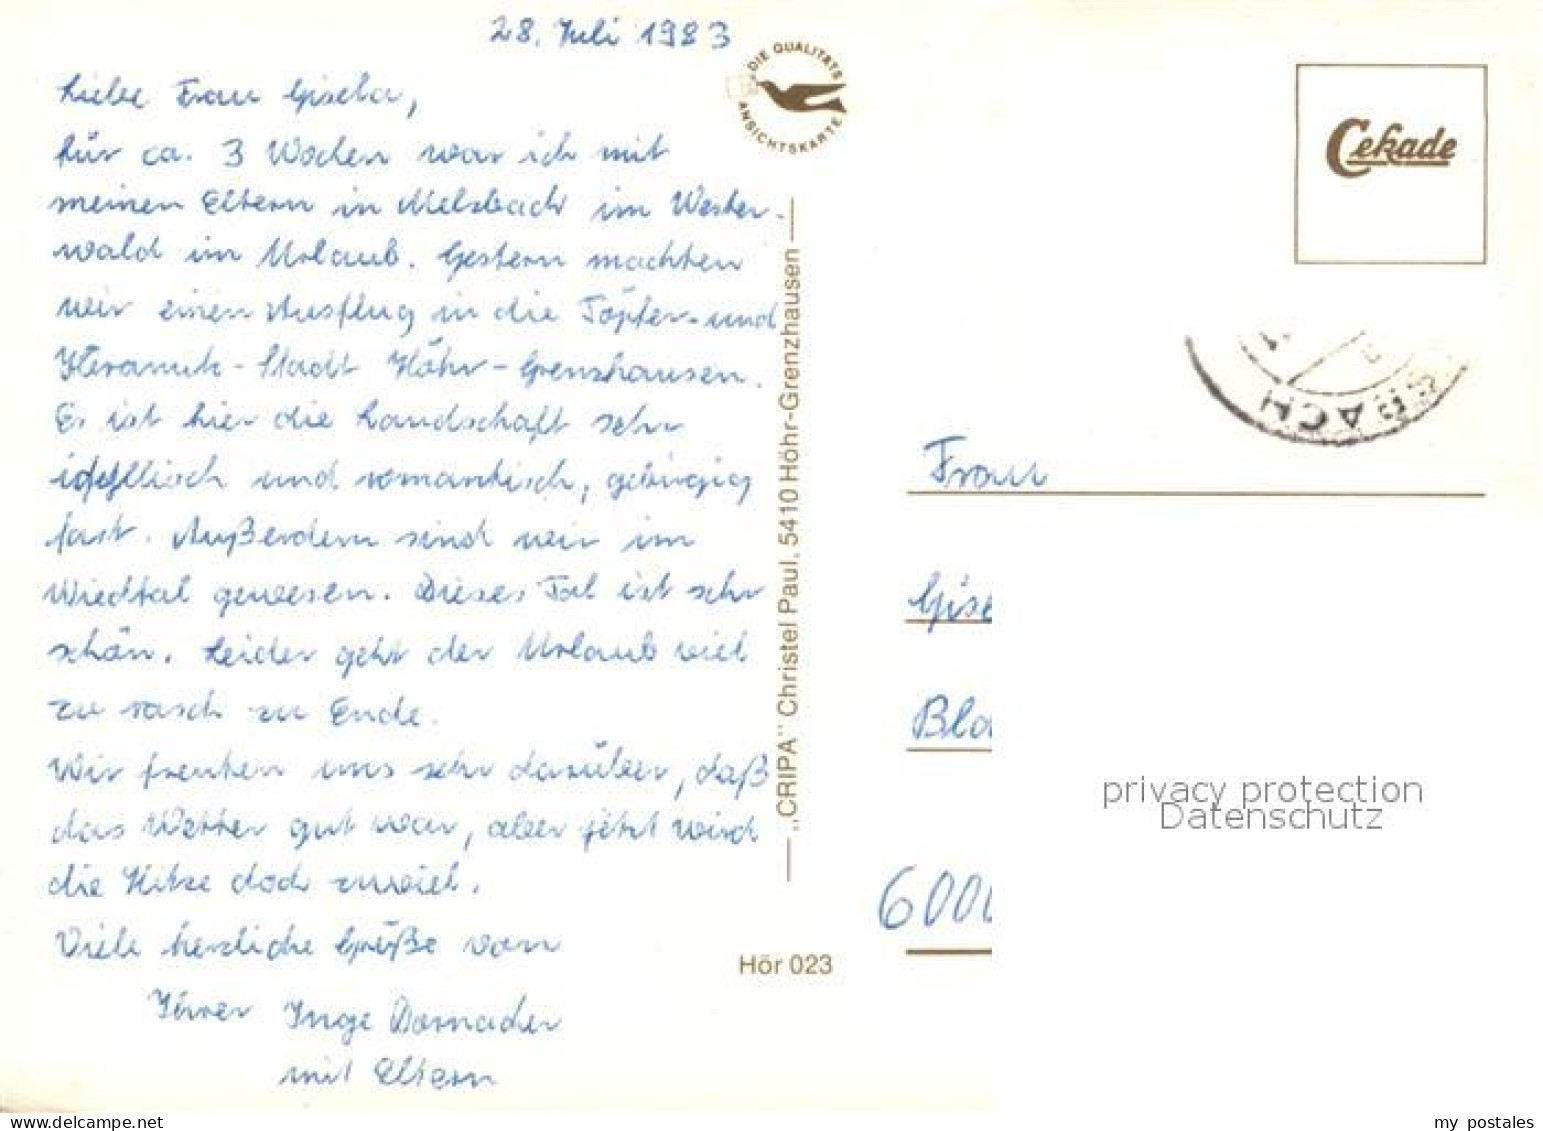 28. Juli 1983
Liebe Frau Gisela,
für ca. 3 Wochen war ich mit
meinen Eltern in Melsbach im Wester-
wald im Urlaub. Gestern machten
wir einen Ausflug in die Töpfer- und
Keramik-Stadt Höhr-Grenzhausen.
Es ist hier die Landschaft sehr
idyllisch und romantisch, gebirgig
fast. Außerdem sind wir im
Wiedtal gewesen. Dieses Tal ist sehr
schön. Leider geht der Urlaub viel
zu rasch zu Ende.
Wir freuten uns sehr darüber, daß
das Wetter gut war, aber jetzt wird
die Hitze doch zuviel.
Viele herzliche Grüße von
Ihrer Inge Dornacher
mit Eltern
DIE QUALITÄTS
ANSICHTSKARTE
„CRIPA" Christel Paul, 5410 Höhr-Grenzhausen
Hör 023
Cekade
BACH
Frau
Gise
Bla
6000
privacy protection
Datenschutz
my postales